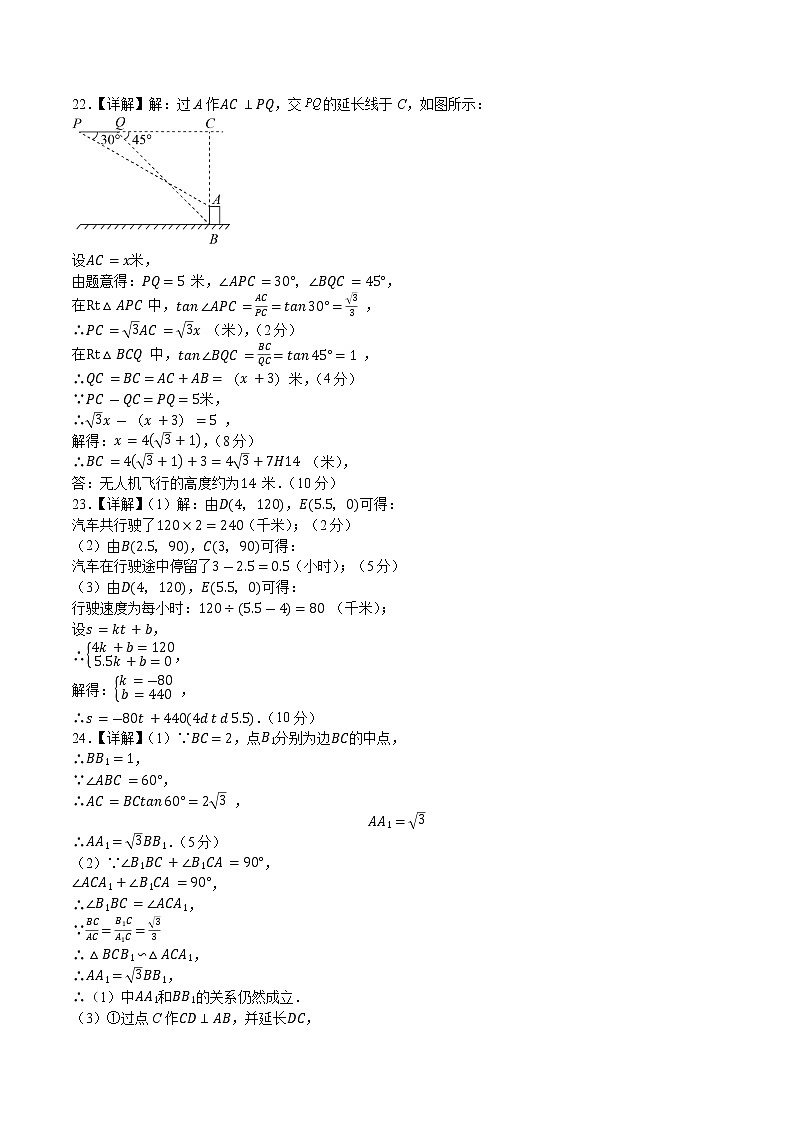 22.【详解】解：过 A 作AC ⊥ PQ，交 PQ 的延长线于 C，如图所示：
P Q C
30° 45°
A
B
设AC = x米，
由题意得：PQ = 5 米，∠APC = 30°，∠BQC = 45°，
在Rt△ APC 中，tan ∠APC = AC/PC = tan 30° = √3/3 ，
∴PC = √3AC = √3x （米），（2 分）
在Rt△ BCQ 中，tan∠BQC = BC/QC = tan 45° = 1 ，
∴QC = BC = AC + AB = （x + 3）米，（4 分）
∵PC − QC = PQ = 5米，
∴√3x − （x + 3） = 5 ，
解得：x = 4(√3 + 1)，（8 分）
∴BC = 4(√3 + 1) + 3 = 4√3 + 7H14 （米），
答：无人机飞行的高度约为14 米．（10 分）
23.【详解】（1）解：由D(4，120)，E(5.5，0)可得：
汽车共行驶了120 × 2 = 240（千米）；（2 分）
（2）由B(2.5，90)，C(3，90)可得：
汽车在行驶途中停留了3 − 2.5 = 0.5（小时）；（5 分）
（3）由D(4，120)，E(5.5，0)可得：
行驶速度为每小时：120 ÷ (5.5 − 4) = 80 （千米）；
设s = kt + b，
∴{4k + b = 120
5.5k + b = 0，
解得：{k = −80
b = 440 ，
∴s = −80t + 440(4d t d 5.5)．（10 分）
24.【详解】（1）∵BC = 2，点B₁分别为边BC的中点，
∴BB₁ = 1，
∵∠ABC = 60°，
∴AC = BCtan60° = 2√3 ，
AA₁ = √3
∴AA₁ = √3BB₁．（5 分）
（2）∵∠B₁BC + ∠B₁CA = 90°，
∠ACA₁ + ∠B₁CA = 90°，
∴∠B₁BC = ∠ACA₁，
∵BC/AC = B₁C/A₁C = √3/3
∴ △ BCB₁ ∽△ ACA₁，
∴AA₁ = √3BB₁，
∴（1）中AA₁和BB₁的关系仍然成立．
（3）①过点 C 作CD ⊥ AB，并延长DC，